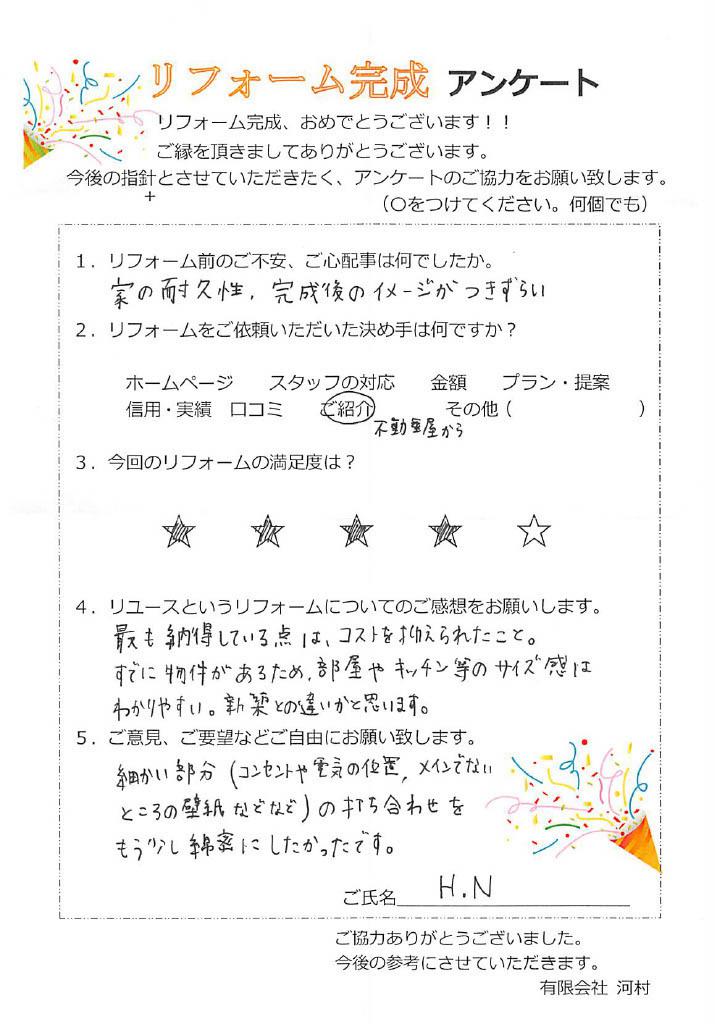 リフォーム完成 アンケート
リフォーム完成、おめでとうございます！！
ご縁を頂きましてありがとうございます。
今後の指針とさせていただきたく、アンケートのご協力をお願い致します。
（○をつけてください。何個でも）
1．リフォーム前のご不安、ご心配事は何でしたか。
家の耐久性，完成後のイメージがつきずらい
2．リフォームをご依頼いただいた決め手は何ですか？
ホームページ　スタッフの対応　金額　プラン・提案
信用・実績　口コミ　ご紹介　その他（　　　）
不動産屋から
3．今回のリフォームの満足度は？
4．リユースというリフォームについてのご感想をお願いします。
最も納得している点は、コストを抑えられたこと。
すでに物件があるため、部屋やキッチン等のサイズ感は
わかりやすい。新築との違いかと思います。
5．ご意見、ご要望などご自由にお願い致します。
細かい部分（コンセントや電気の位置，メインでない
ところの壁紙などなど）の打ち合わせを
もう少し綿密にしたかったです。
ご氏名 H.N
ご協力ありがとうございました。
今後の参考にさせていただきます。
有限会社 河村